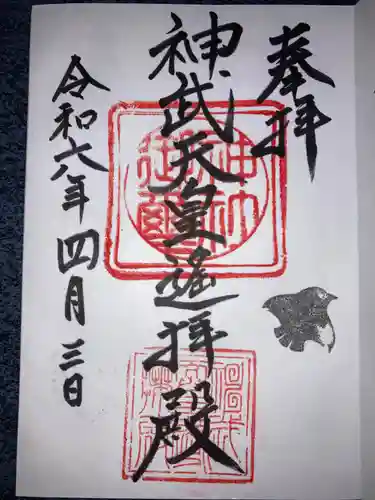 奉拝
神武天皇遙拝殿
令和六年四月三日